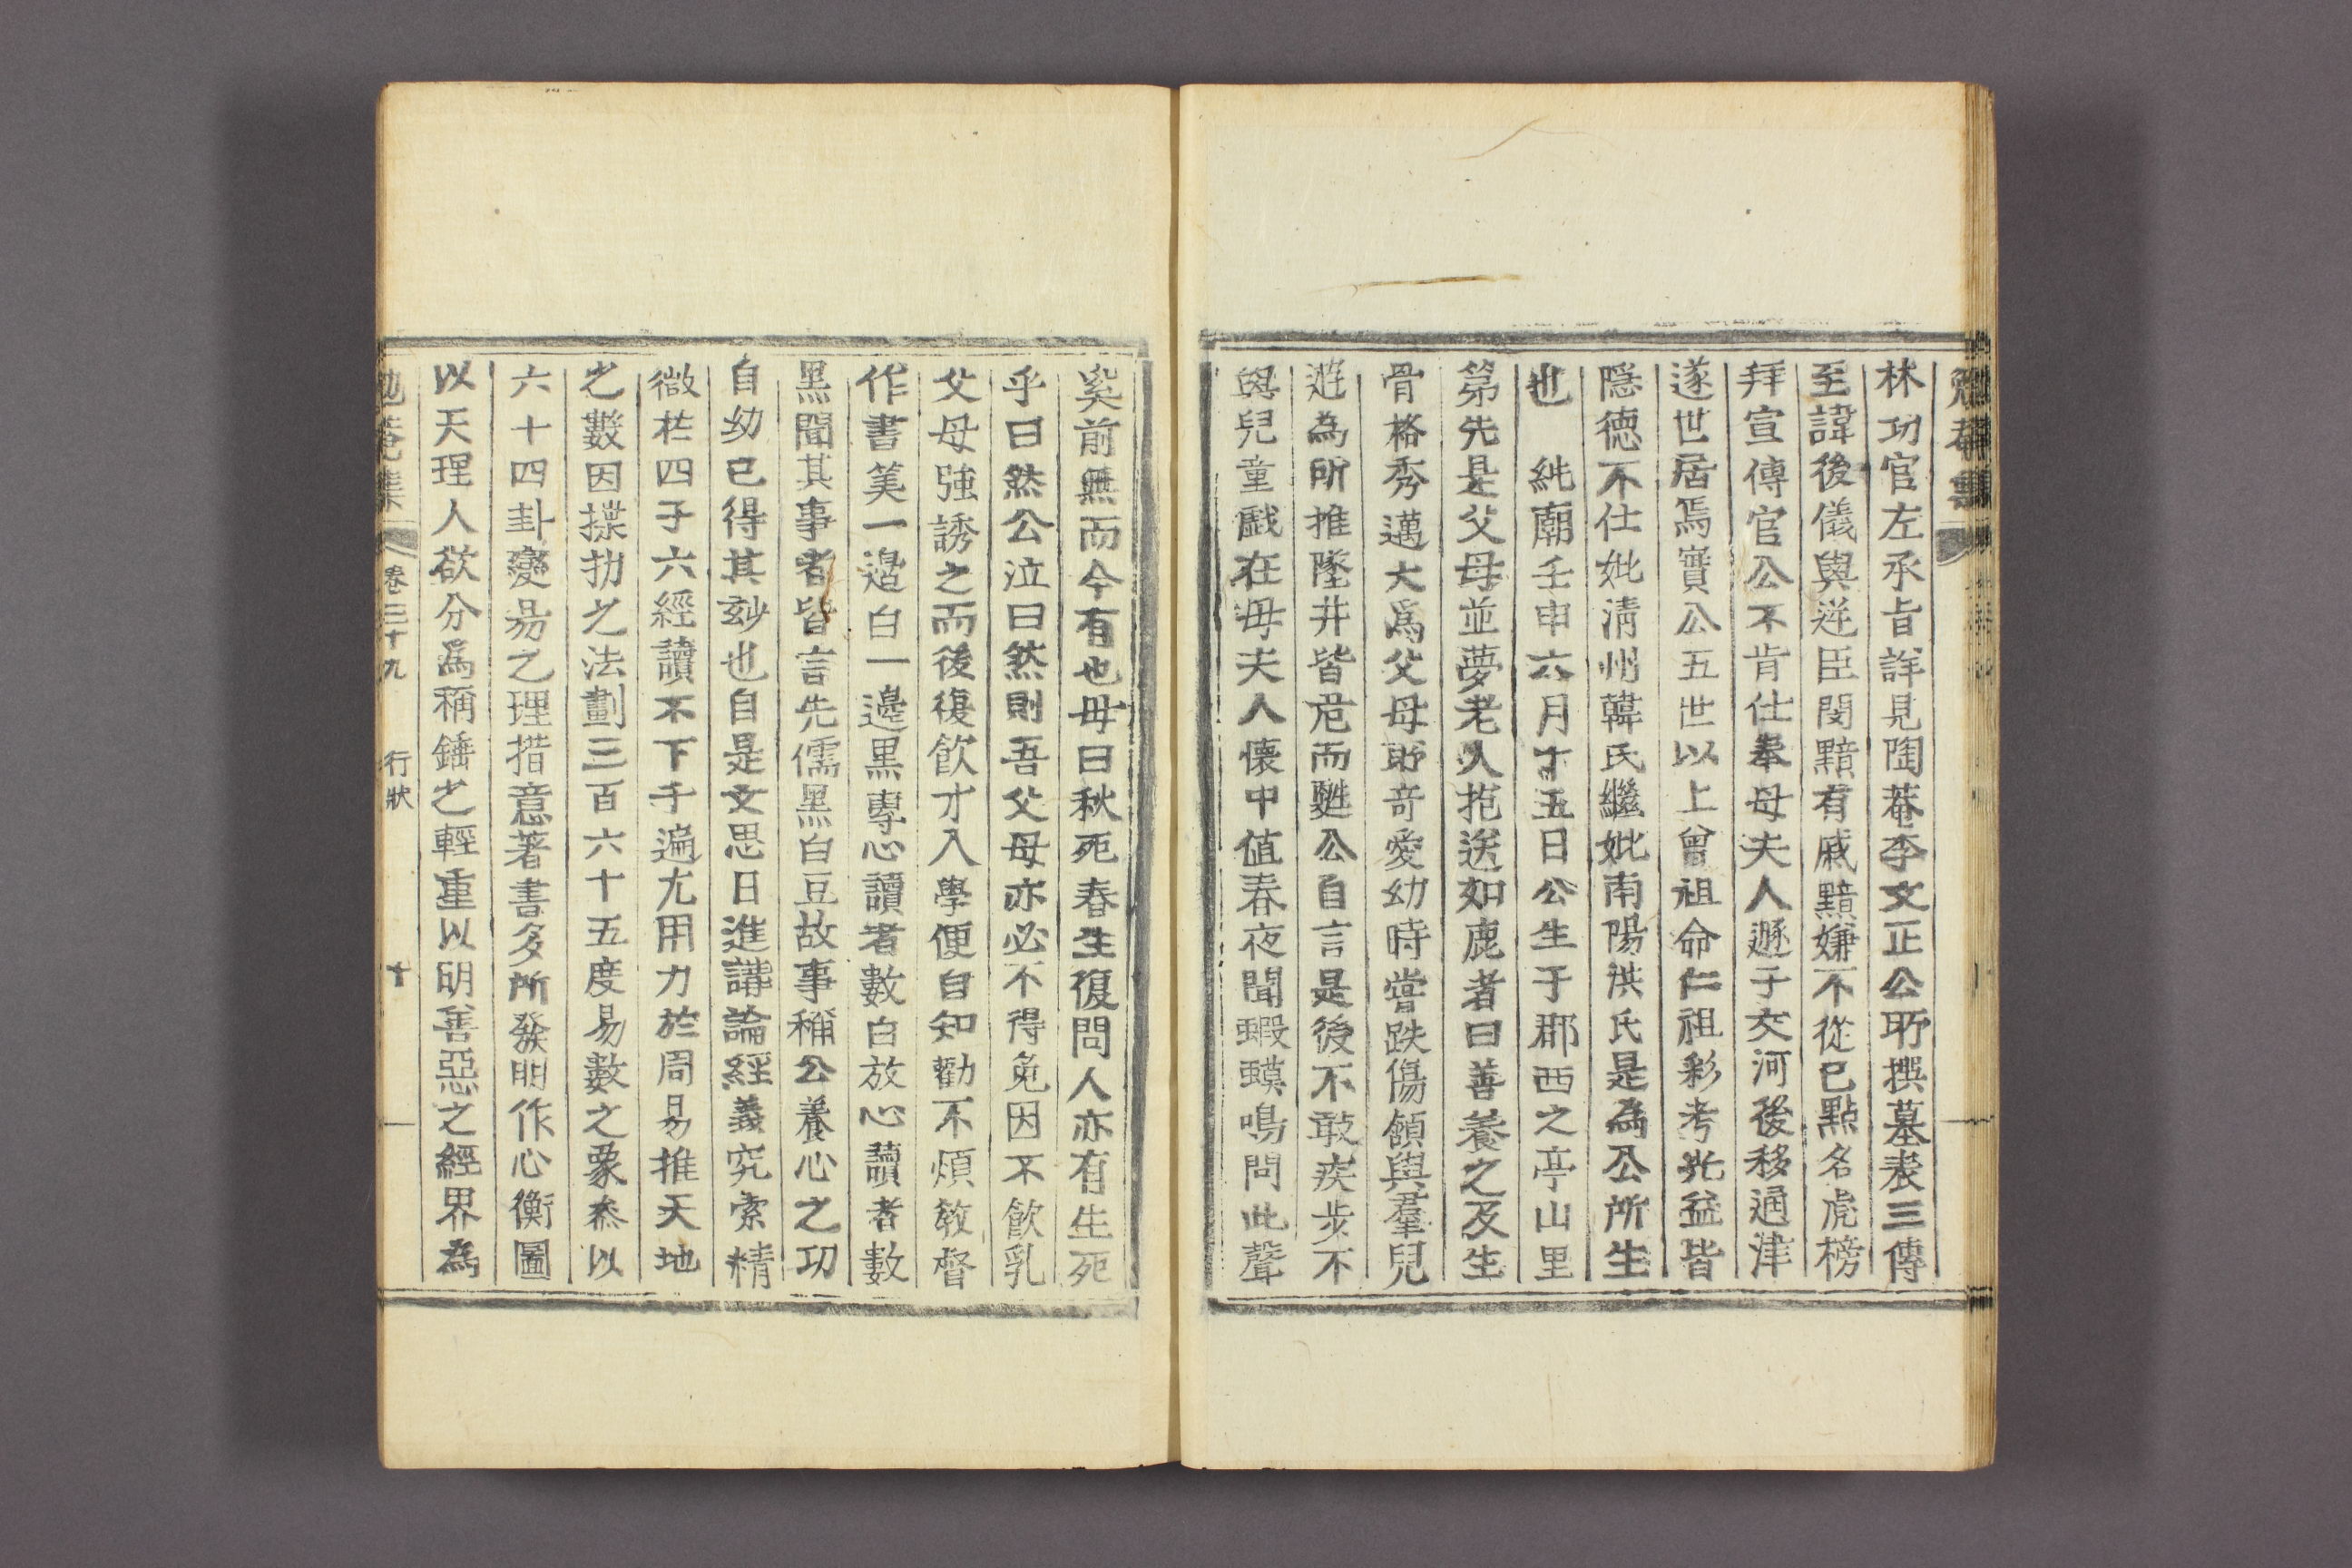 勉菴集
林功官左承旨詳見陶菴李文正公所撰墓表三傳
至諱後儀與逆臣閔黯有戚黯嫌不從已點名虎榜
拜宣傳官公不肯仕奉母夫人遯于交河後移通津
遂世居焉寶公五世以上曾祖命仁祖彩考光益皆
隱德不仕妣淸州韓氏繼妣南陽洪氏是爲公所生
也　純廟壬申六月丁五日公生于郡西之亭山里
第先是父母並夢老人抱送如鹿者曰善養之及生
骨格秀邁大爲父母所奇愛幼時嘗跌傷額與羣兒
遊爲所推墜井皆危而甦公自言是後不敢疾步不
與兒童戱在毋夫人懷中値春夜聞蝦蟆鳴問此聲
奚前無而今有也毋曰秋死春生復問人亦有生死
乎曰然公泣曰然則吾父母亦必不得免因不飮乳
父母強誘之而後復飮才入學便自知勸不煩敎督
作書筭一邉白一邊黑專心讀者數白放心讀者數
黑聞其事者皆言先儒黑白豆故事稱公養心之功
自幼已得其玅也自是文思日進講論經義究索精
微於四子六經讀不下千遍尤用力於周易推天地
之數因揲扐之法劃三百六十五度易數之象叅以
六十四卦變易之理措意著書多所發明作心衡圖
以天理人欲分爲稱錘之輕重以明善惡之經界爲
勉菴集　卷三十九　行狀　十